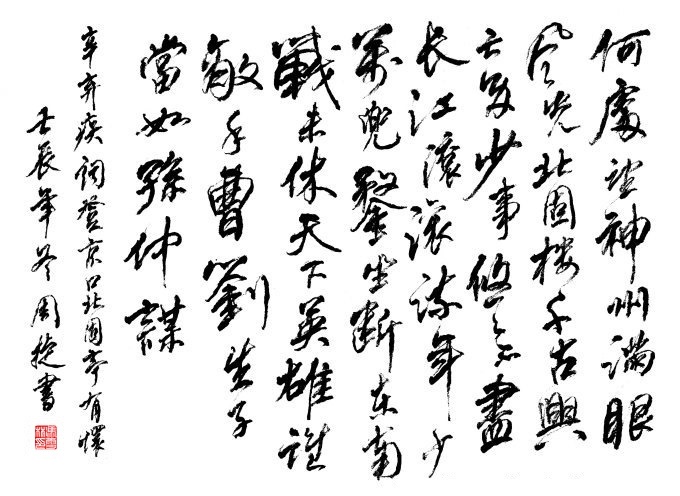 何處望神州满眼
风光北固楼千古興
亡多少事悠悠不盡
长江滚滚流年少
萬兜鍪坐断东南
戰未休天下英雄谁
敵手曹劉生子
當如孫仲謀
辛弃疾词登京口北固亭有懷
壬辰年冬周捷書